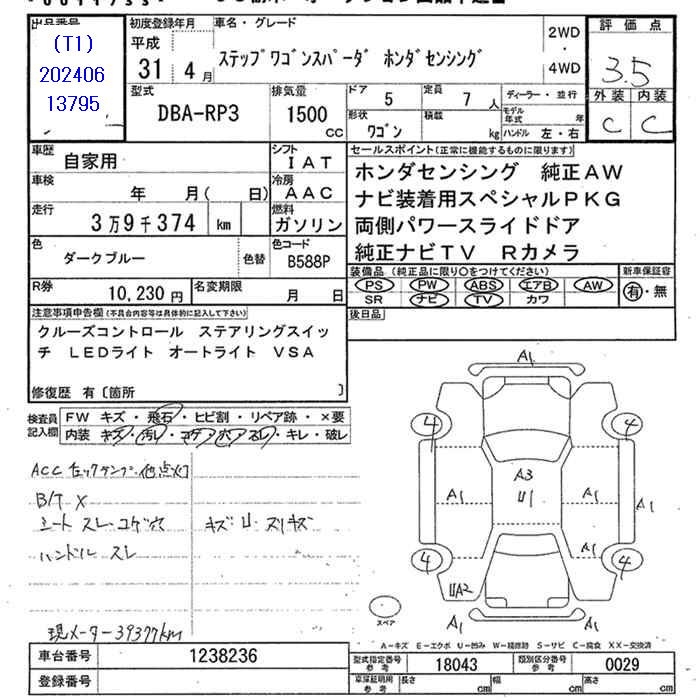 出品番号
(T1)
202406
13795
初度登録年月
平成
31年 4月
車名・グレード
ステップワゴンスパーダ ホンダセンシング
2WD
・
4WD
評価点
3.5
外装 内装
C C
型式
DBA-RP3
排気量
1500
CC
ドア 5
定員 7人
ディーラー・並行
形状 ワゴン
積載 kg
モデル年式 年
ハンドル 左・右
車歴 自家用
シフト IAT
車検 年 月( 日)
冷房 AAC
走行 3万9千374 km
燃料 ガソリン
色 ダークブルー 色替
色コード B588P
R券 10,230円
名変期限 月 日
セールスポイント(正常に機能するものに限ります)
ホンダセンシング 純正AW
ナビ装着用スペシャルPKG
両側パワースライドドア
純正ナビTV Rカメラ
装備品(純正品に限り○をつけてください)
新車保証書
PS PW ABS エアB AW
SR ナビ TV カワ
有・無
後日品
注意事項申告欄(不具合内容等は具体的に記入して下さい)
クルーズコントロール ステアリングスイッ
チ LEDライト オートライト VSA
修復歴 有〔箇所 〕
検査員記入欄
FW キズ・飛石・ヒビ割・リペア跡・×要
内装 キズ・汚レ・コゲ・穴・スレ・キレ・破レ
B/T X
シート スレ・コゲ穴
キズ・U・スリキズ
ハンドル スレ
現メーター39377km
A1
4 4
A3
A1 U1 A1
A1
4 4
UA2
A1 A1
スペア
A-キズ E-エクボ U-凹み W-補修跡 S-サビ C-腐食 XX-交換済
車台番号 1238236
登録番号
型式指定番号参考 18043
類別区分番号参考 0029
車庫証明用参考 長さ cm 幅 cm 高さ cm